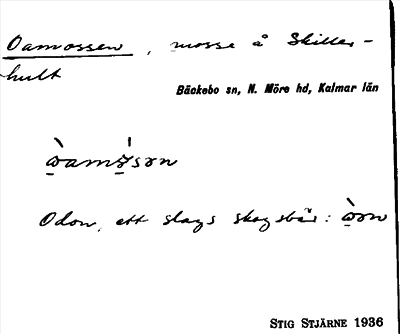 Oamossen, mosse å Skiller-
hult
Bäckebo sn, N. Möre hd, Kalmar län
Odon, ett slags skogsbär:
STIG STJÄRNE 1936